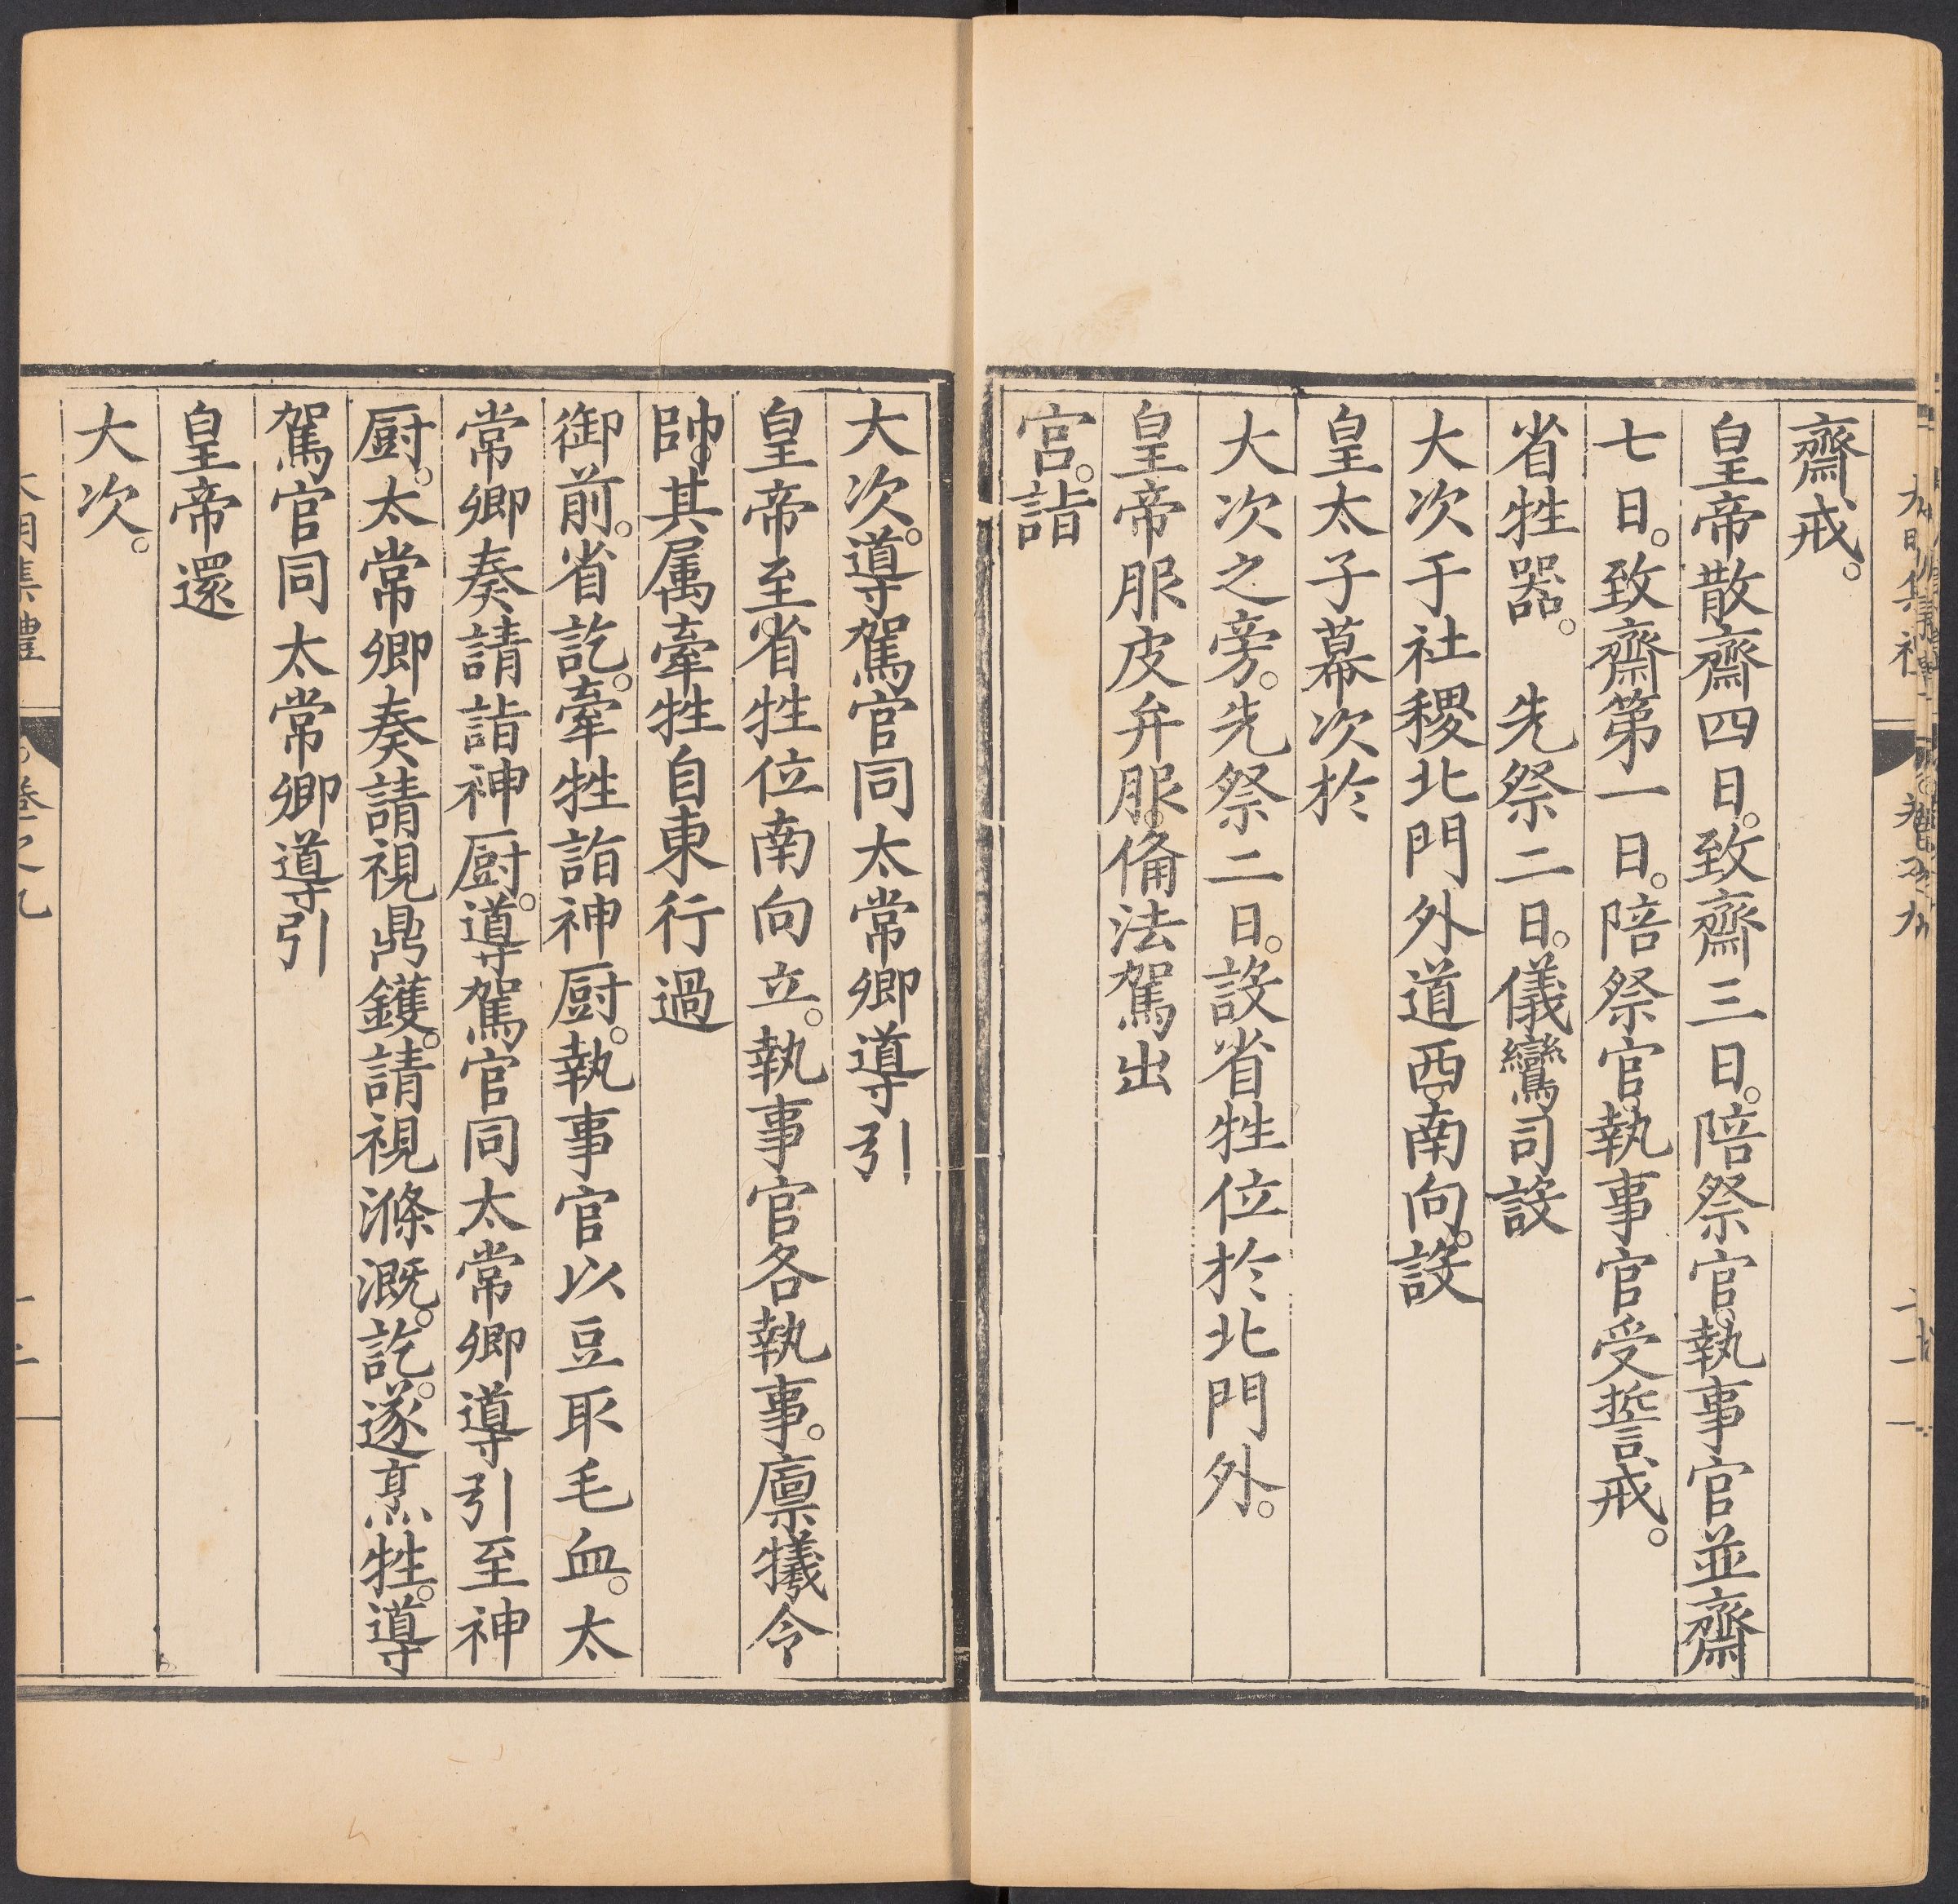 齋戒。
皇帝散齋四日。致齋三日。陪祭官。執事官並齋
七日。致齋第一日。陪祭官執事官受誓戒。
省牲器。　先祭二日。儀鸞司設
大次于社稷北門外道西。南向。設
皇太子幕次於
大次之旁。先祭二日。設省牲位於北門外。
皇帝服皮弁服。備法駕出
宮。詣
大次。導駕官同太常卿導引
皇帝至省牲位南向立。執事官各執事。廩犧令
帥。其属牽牲自東行過
御前。省訖。牽牲詣神厨。執事官以豆取毛血。太
常卿奏請詣神厨。導駕官同太常卿導引至神
厨。太常卿奏請視鼎鑊。請視滌溉。訖。遂烹牲。導
駕官同太常卿導引
皇帝還
大次。